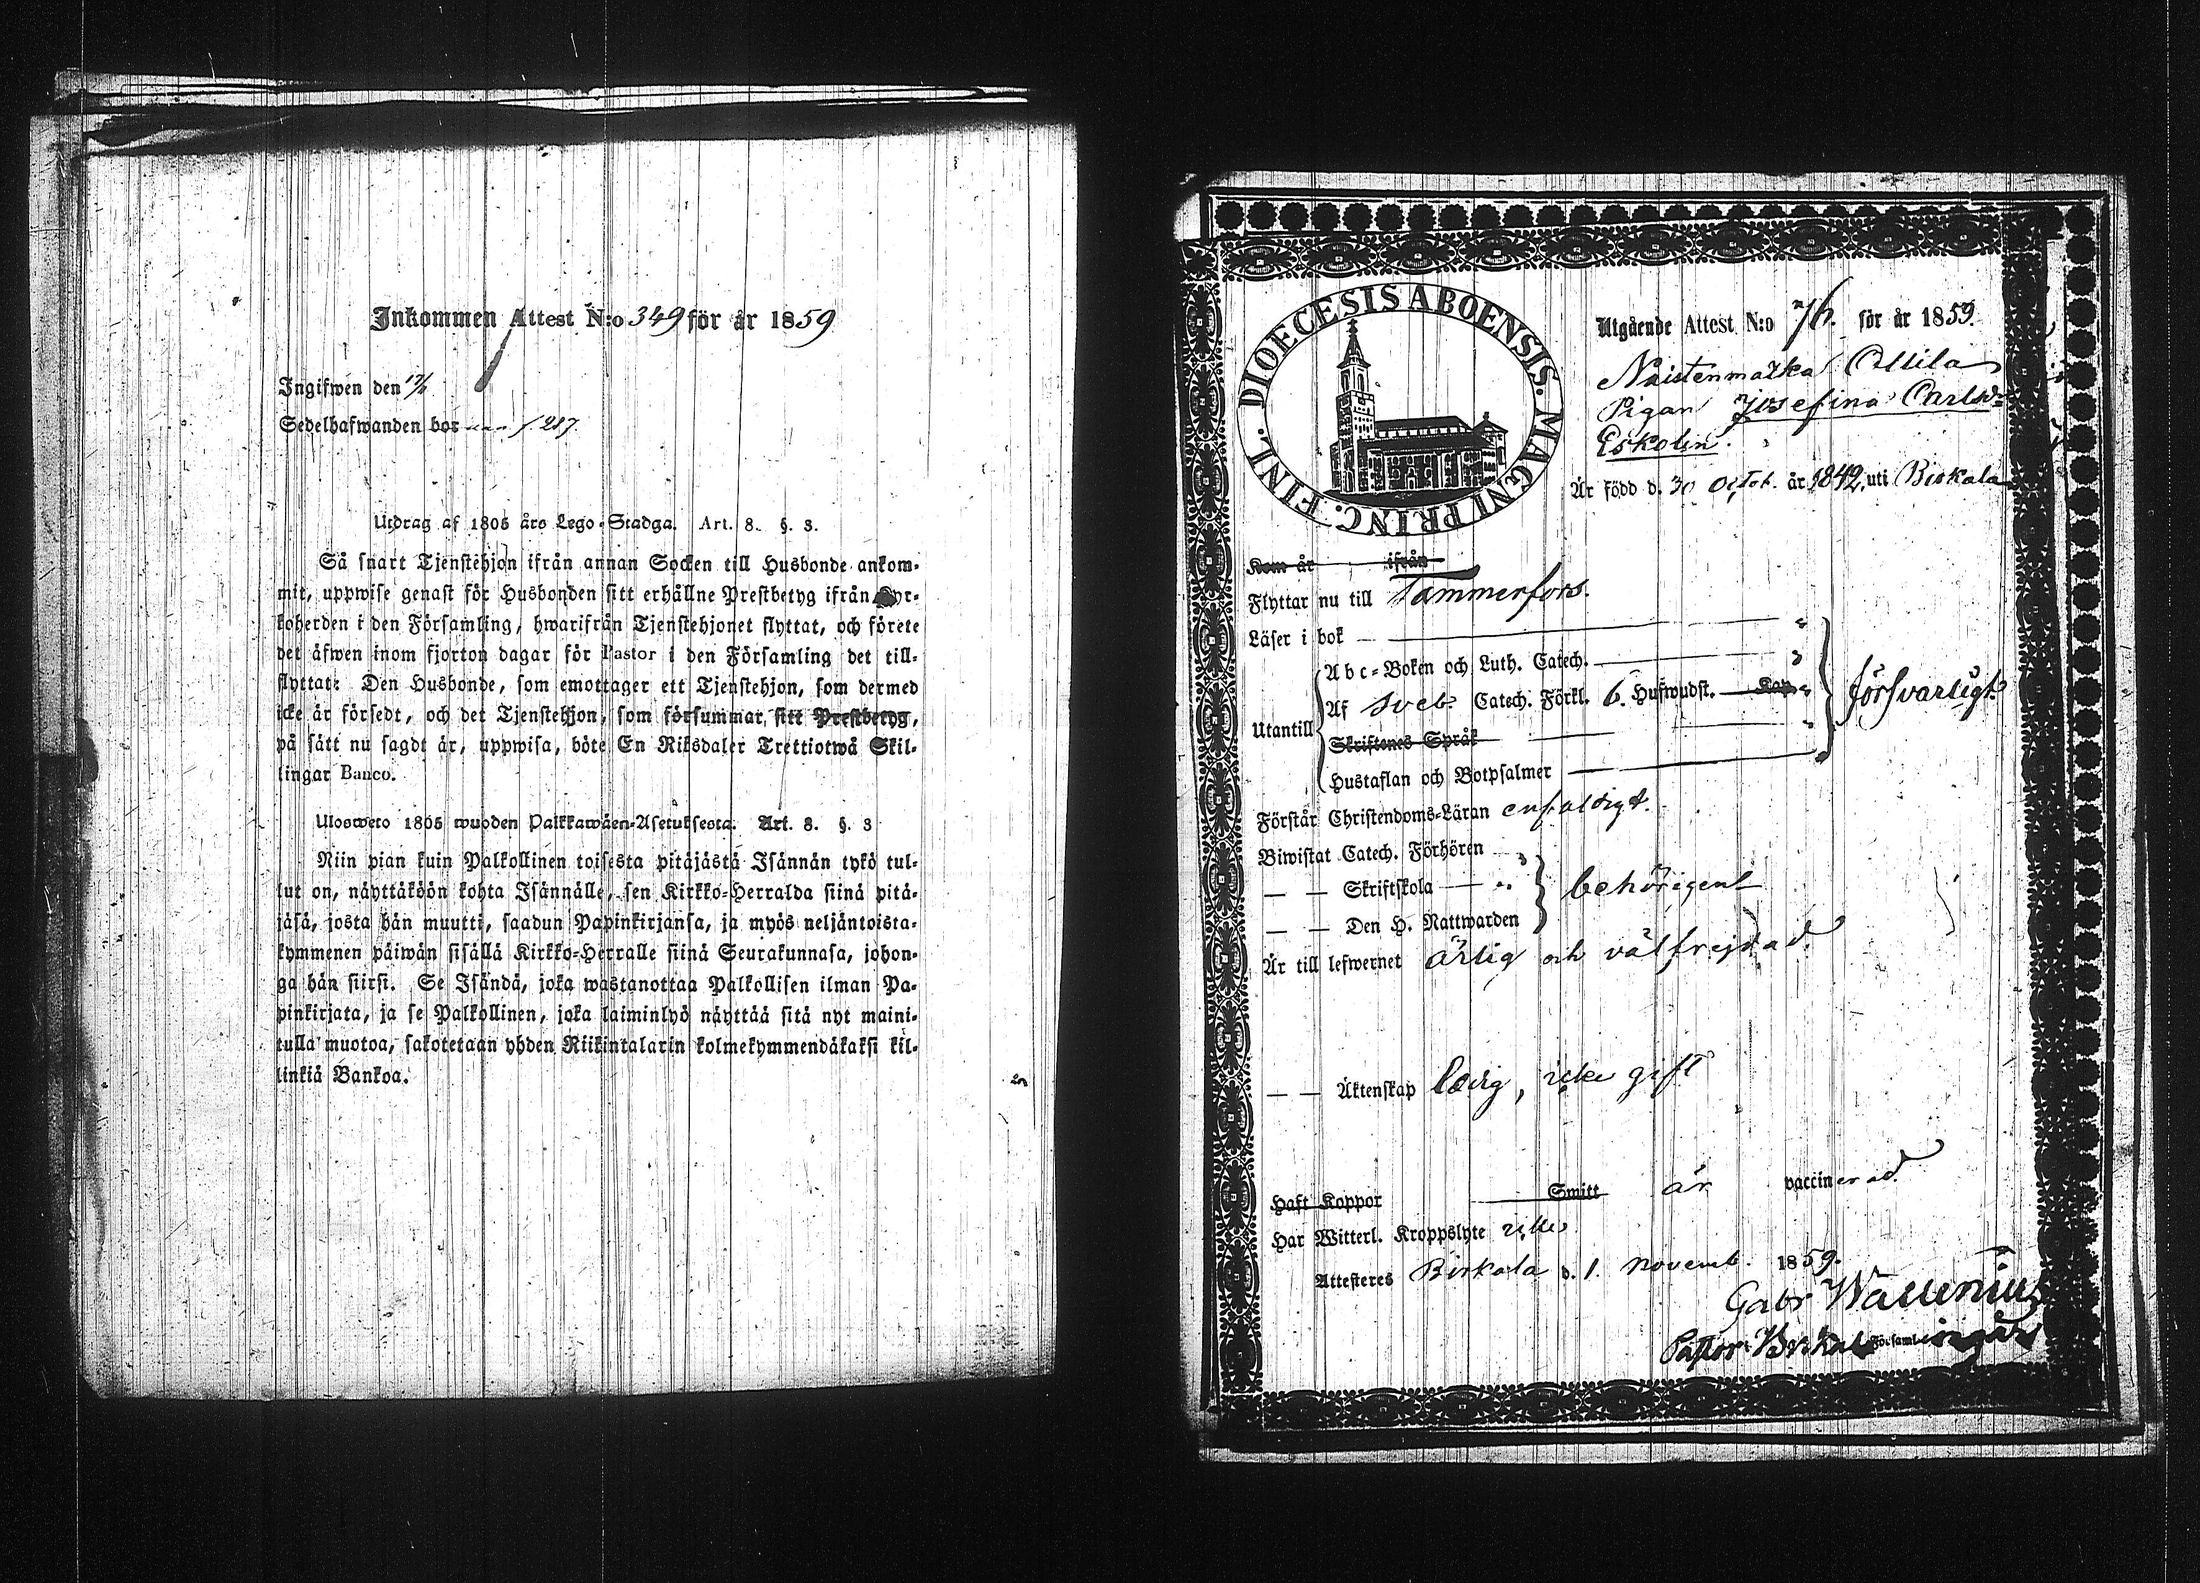 Inkommen Attest N:o 349 för år 1859
Ingifwen den
Sedelhafwanden bor 287.
Utdrag af 1805 års Lego-Stadga. Art. 8. §. 3.
Så snart Tjenstehjon ifrån annan Socken till Husbonde ankom-
mit, uppwise genast för Husbonden sitt erhållne Prestbetyg ifrån Kyr-
koherden i den Församling, hwarifrån Tjenstehjonet flyttat, och förete
det äfwen inom fjorton dagar för Pastor i den Församling det till-
flyttat: Den Husbonde, som emottager ett Tjenstehjon, som dermed
icke är försedt, och det Tjenstehjon, som försummar sitt Prestbetyg,
på sätt nu sagdt är, uppwisa, böte En Riksdaler Trettiotwå Skil-
lingar Banco.
Ulosweto 1805 wuoden Palkkawäen-Asetuksesta. Art. 8. §. 3
Niin pian kuin Palkollinen toisesta pitäjästä Isännän tykö tul-
lut on, näyttäköön kohta Isännälle, sen Kirkko-Herralda siinä pitä-
jäsä, josta hän muutti, saadun Papinkirjansa, ja myös neljäntoista-
kymmenen päiwän sisällä Kirkko-Herralle siinä Seurakunnasa, johon-
ga hän siirsi. Se Isändä, joka wastanottaa Palkollisen ilman Pa-
pinkirjata, ja se Palkollinen, joka laiminlyö näyttää sitä nyt maini-
tulla muotoa, sakotetaan yhden Riikintalarin kolmekymmendäkaksi kil-
linkiä Bankoa.
DIOECESIS ABOENSIS. MAGNI PRINC. FINL.
Utgående Attest N:o 76. för år 1859.
Naistenmatka Ollila
Pigan Josefina Carlsd:
Eskolin.
Är född d. 30 Octob. år 1842 uti Birkala
Kom år ifrån
Flyttar nu till Tammerfors.
Läser i bok
Abc-Boken och Luth. Catech.
Af Sveb. Catech. Förkl. 6. Hufwudst. Kap.
försvarligt
Utantill
Skriftenes Språk
Hustaflan och Botpsalmer
Förstår Christendoms-Läran enfaldigt.
Biwistat Catech. Förhören
— — Skriftskola
behörigent
— — Den H. Nattwarden
Är till lefwernet ärlig och välfrejdad.
— — Äktenskap ledig, icke gift
Haft Koppor Smitt är vaccinerad.
Har Witterl. Kroppslyte icke
Attesteres Birkala d. 1. Novemb. 1859.
Gabr Wallenius
Pastor i Birkala Församlingar